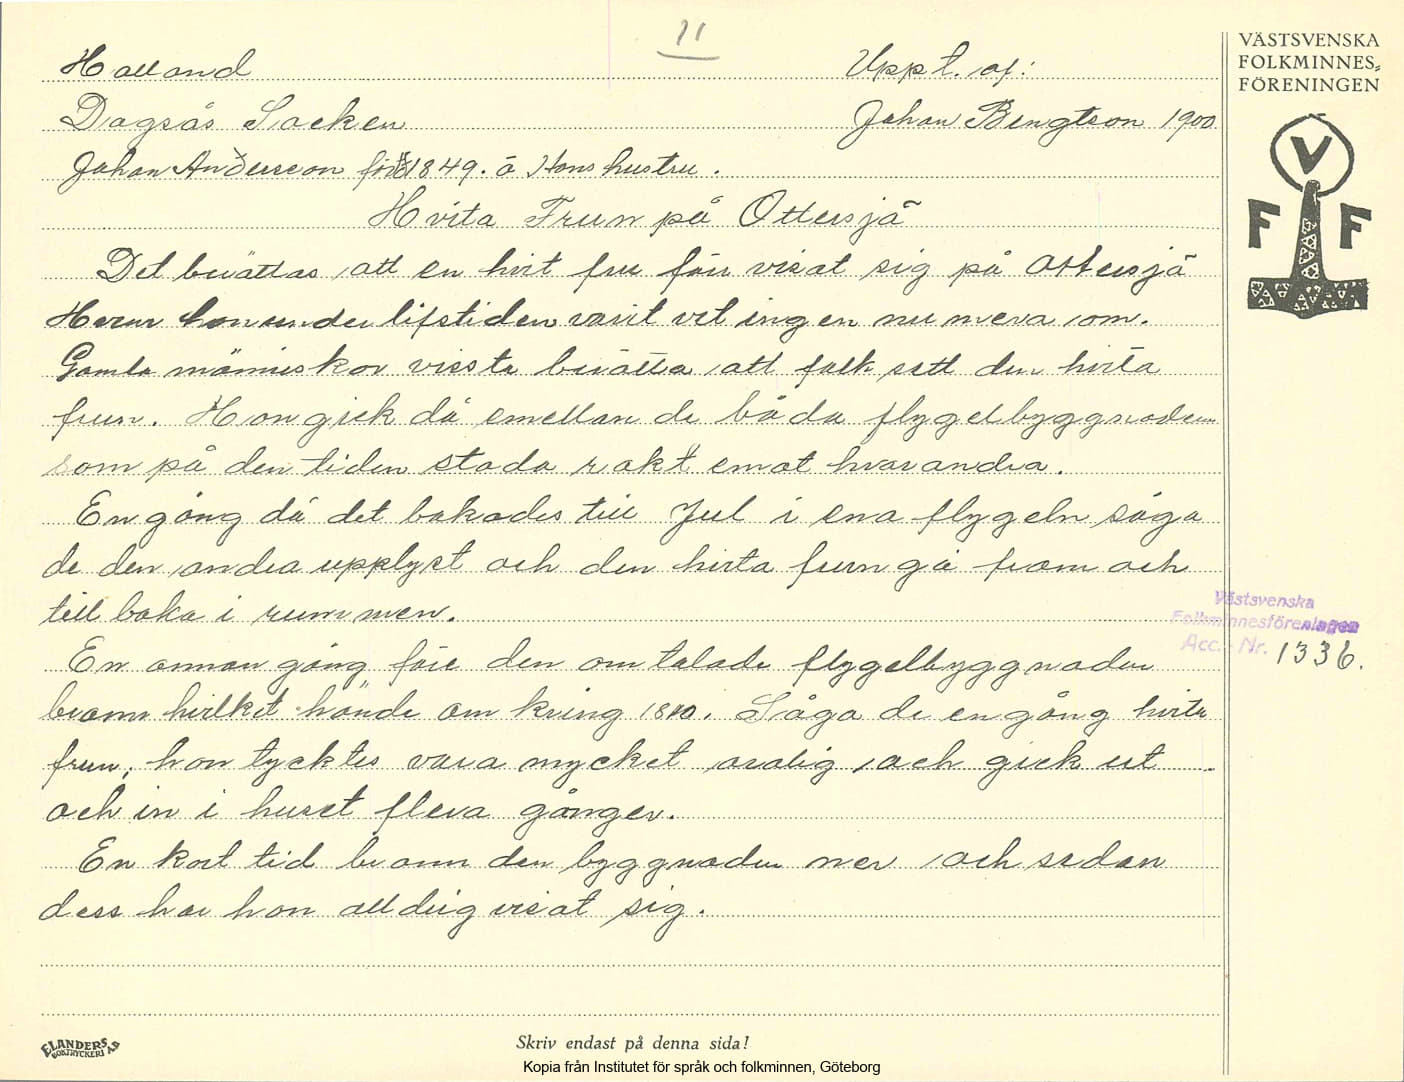 11
Halland
Uppt. af:
Dagsås Socken
Johan Bengtson 1900
Johan Andersson född 1849. å Hans hustru.
Hvita Frun på Ottersjä
Det berättas att en hvit fru förr visat sig på Ottersjä
Hvem hon under lifstiden varit vet ingen nu mera om.
Gamla människor vissta berätta att folk sett den hvita
frun. Hon gick då emellan de båda flygelbyggnaderna
som på den tiden stodo rakt emot hvarandra.
En gång då det bakades till Jul i ena flygeln såga
de den andra upplyst och den hvita frun gå fram och
till baka i rummen.
En annan gång före den om talade flygelbyggnaden
brann hvilket hände om kring 1810. Såga de en gång hvita
frun, hon tycktes vara mycket orolig och gick ut
och in i huset flera gånger.
En kort tid brann den byggnaden ner och sedan
dess har hon alldrig visat sig.
VÄSTSVENSKA
FOLKMINNES-
FÖRENINGEN
V
F F
Västsvenska
Folkminnesföreningen
Acc. - Nr. 1336.
ELANDERS
BOKTRYCKERI AB
Skriv endast på denna sida!
Kopia från Institutet för språk och folkminnen, Göteborg